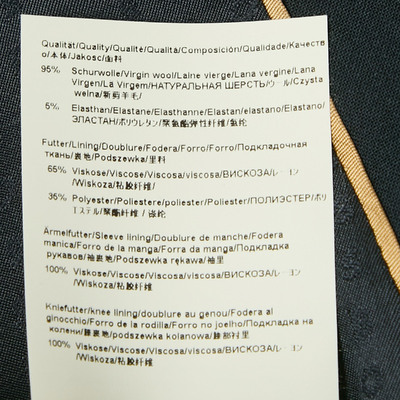 Qualität/Quality/Qualité/Qualità/Composición/Qualidade/Качеств
о/本体/Jakosc/面料
95% Schurwolle/Virgin wool/Laine vierge/Lana vergine/Lana
Virgen/Lã Virgem/НАТУРАЛЬНАЯ ШЕРСТЬ/ウール/Czysta
wełna/新剪羊毛/
5% Elasthan/Elastane/Elasthanne/Elastan/elastano/Elastano/
ЭЛАСТАН/ポリウレタン/聚氨酯弹性纤维/氨纶
Futter/Lining/Doublure/Fodera/Forro/Forro/Подкладочная
ткань/裏地/Podszewka/里料
65% Viskose/Viscose/Viscose/viscosa/viscosa/ВИСКОЗА/レーヨン
/Wiskoza/粘胶纤维/
35% Polyester/Poliestere/poliester/Poliester/ПОЛИЭСТЕР/ポリ
エステル/聚酯纤维 / 涤纶
Ärmelfutter/Sleeve lining/Doublure de manche/Fodera
manica/Forro de la manga/Forro da manga/Подкладка
рукавов/袖裏地/Podszewka rękawa/袖里
100% Viskose/Viscose/Viscose/viscosa/viscosa/ВИСКОЗА/レーヨン
/Wiskoza/粘胶纤维/
Kniefutter/knee lining/doublure au genou/Fodera al
ginocchio/Forro de la rodilla/Forro no joelho/Подкладка на
колени/膝裏地/podszewka kolanowa/膝部衬里
100% Viskose/Viscose/Viscose/viscosa/viscosa/ВИСКОЗА/レーヨン
/Wiskoza/粘胶纤维/